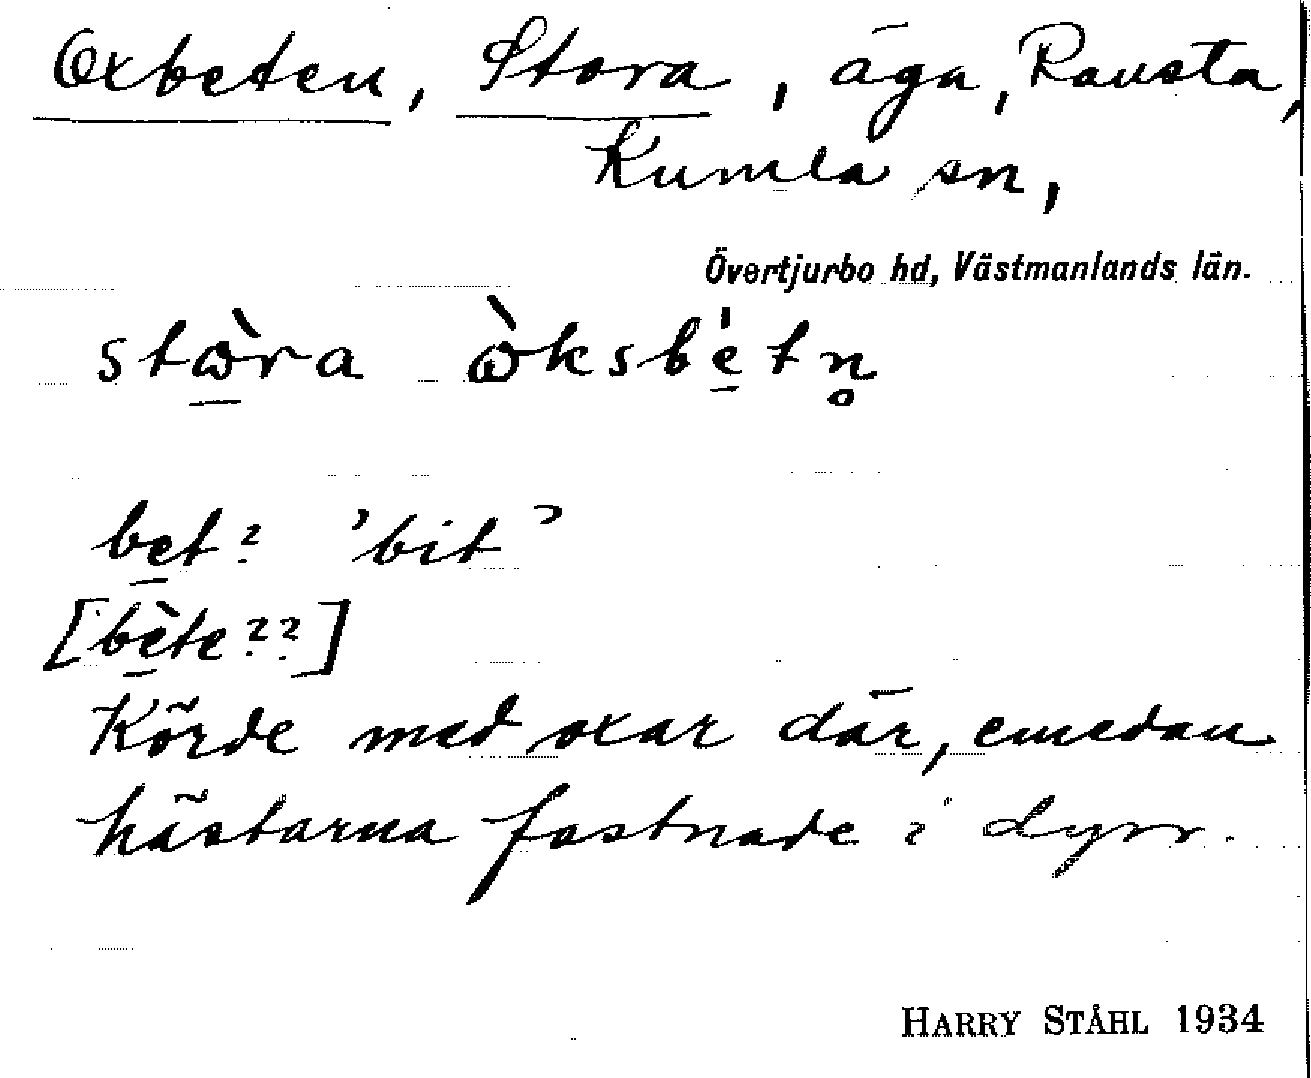 Oxbeten, Stora, äga, Ransta,
Kumla sn,
Övertjurbo hd, Västmanlands län.
stɷ̀ra ɷ̀ksbe̍tn̥
bet? 'bit'
[bète??]
Körde med oxar där, emedan
hästarna fastnade i dyn.
HARRY STÅHL 1934